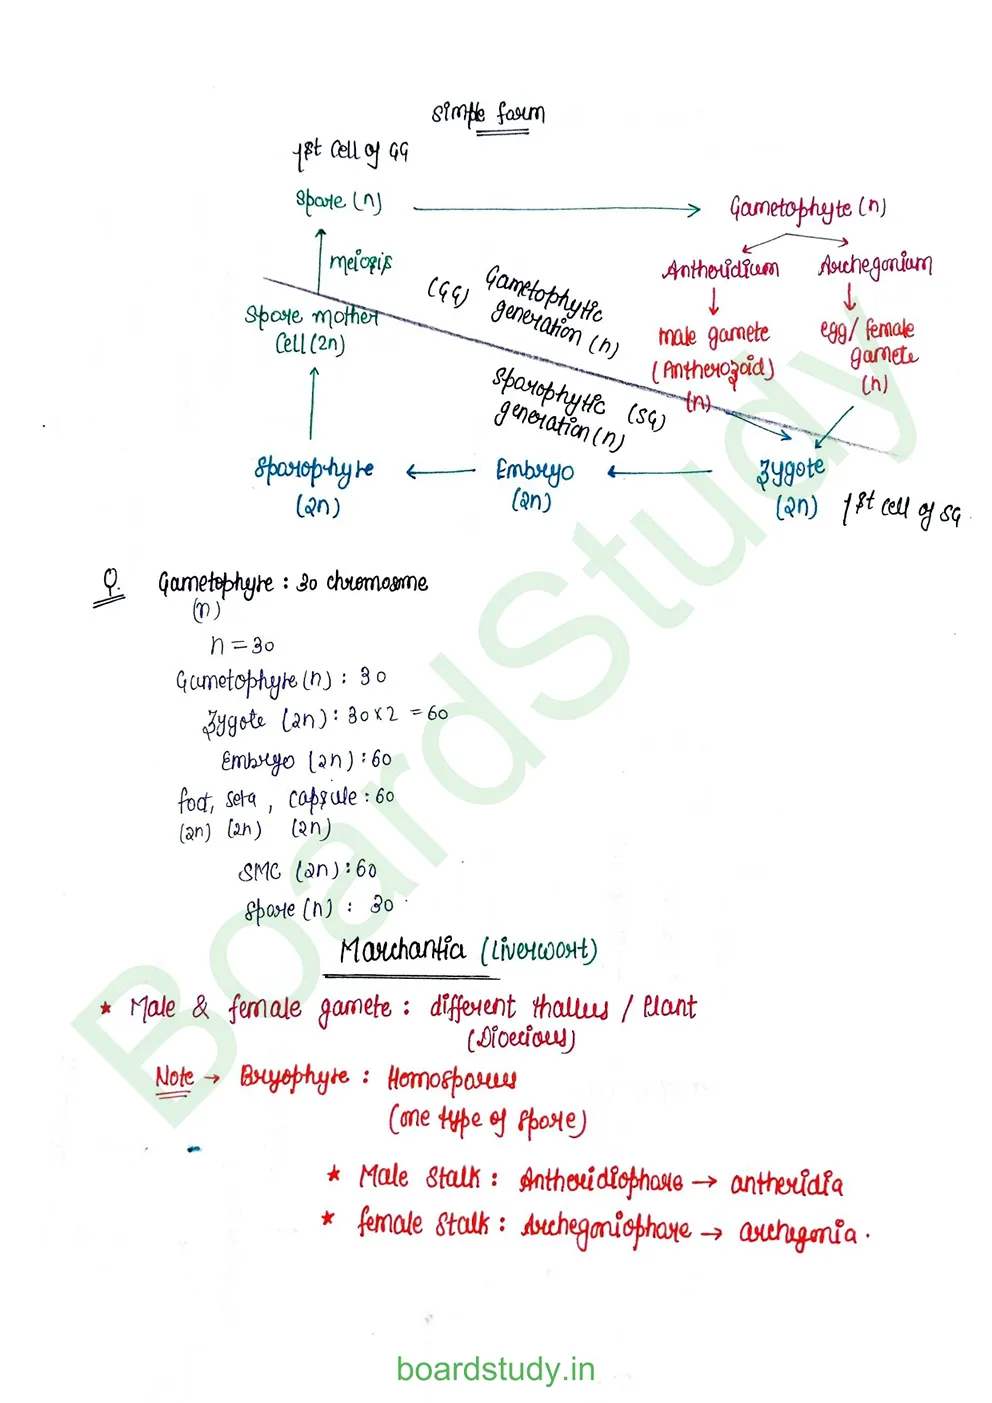 Simple form
1st Cell of GG
Spore (n)
Gametophyte (n)
meiosis
Antheridium
Archegonium
(GG) Gametophytic
generation (n)
Spore mother
Cell (2n)
male gamete
(Antherozoid)
(n)
egg/female
gamete
(n)
Sporophytic (SG)
generation (n)
Sporophyte
(2n)
Embryo
(2n)
Zygote
(2n)
1st cell of SG
Q. Gametophyte : 30 chromosome
(n)
n = 30
Gametophyte (n) : 30
Zygote (2n) : 30 x 2 = 60
Embryo (2n) : 60
foot, seta, capsule : 60
(2n) (2n) (2n)
SMC (2n) : 60
Spore (n) : 30
Marchantia (Liverwort)
★ Male & female gamete : different thallus / Plant
(Dioecious)
Note → Bryophyte : Homosporus
(one type of spore)
★ Male Stalk : Antheridiophore → antheridia
★ female Stalk : Archegoniophore → archegonia.
BoardStudy
boardstudy.in